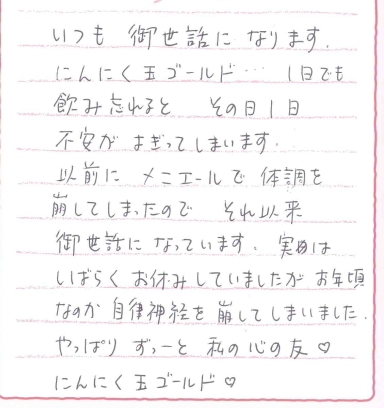 いつも 御世話に なります.
にんにく玉ゴールド… 1日でも
飲み忘れると その日1日
不安が よぎってしまいます.
以前に メニエールで 体調を
崩してしまったので それ以来
御世話に なっています. 実は
しばらく お休みしていましたが お年頃
なのか 自律神経を 崩してしまいました.
やっぱり ずっーと 私の心の友♡
にんにく玉ゴールド♡